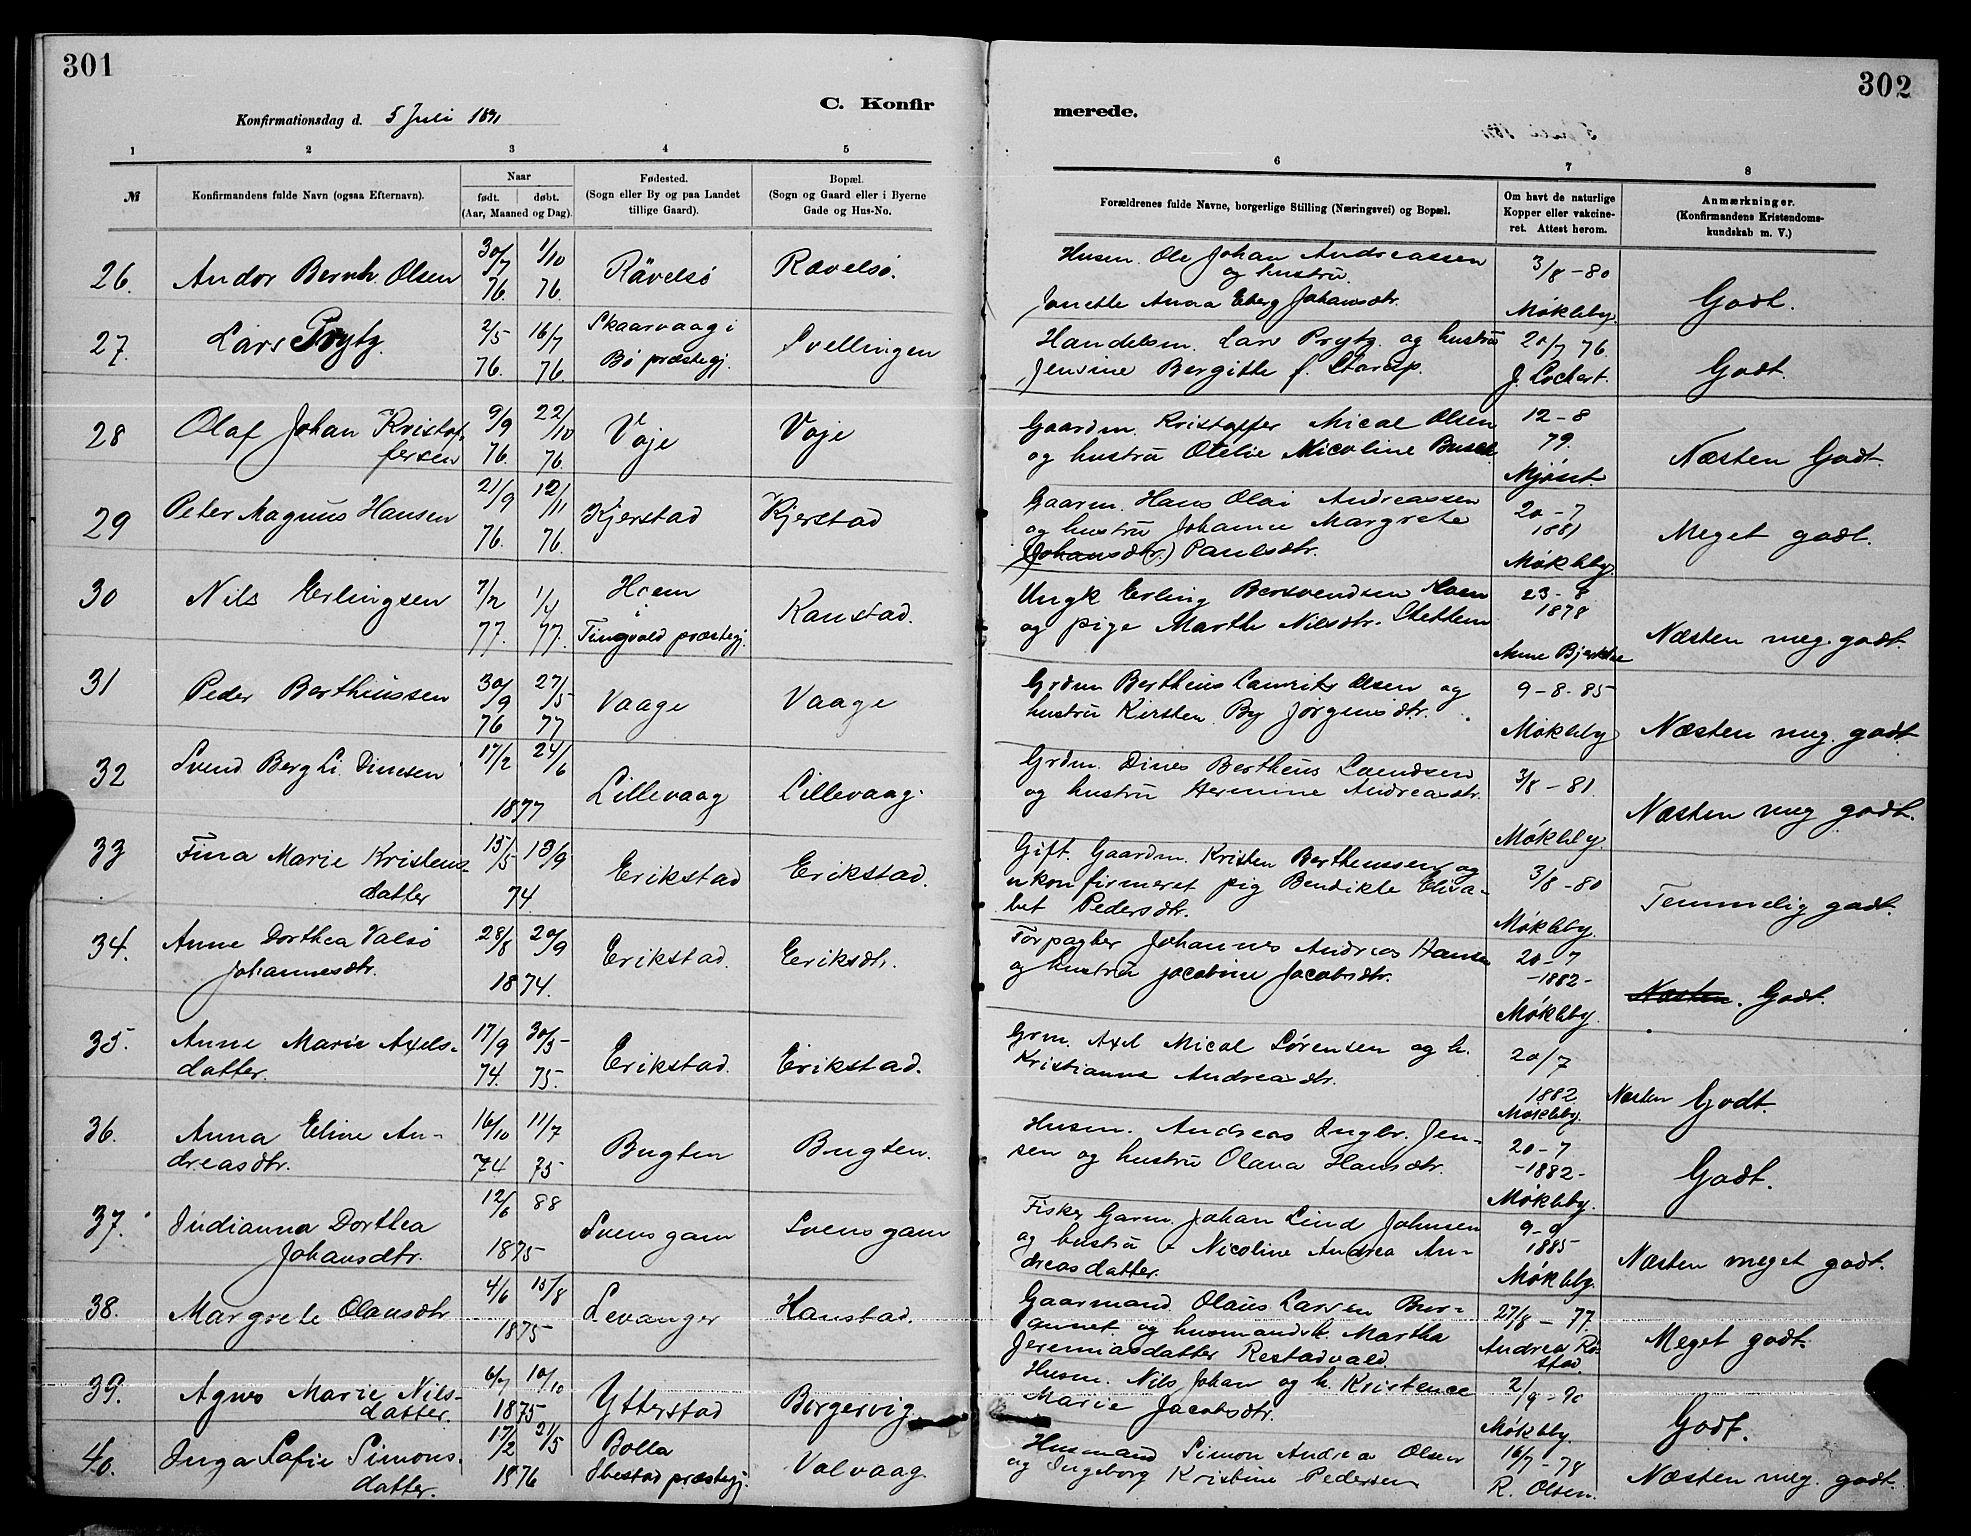 301
Konfirmationsdag d. 5 Juli 1891
C. Konfir
1 2 3 4 5
№
Konfirmandens fulde Navn (ogsaa Efternavn).
Naar
født. døbt.
(Aar, Maaned og Dag).
Fødested.
(Sogn eller By og paa Landet
tillige Gaard).
Bopæl.
(Sogn og Gaard eller i Byerne
Gade og Hus-No.
26. Andor Bernh. Olsen 30/7 76. 1/10 76. Rävelsö Rævelsø.
27. Lars Prytz. 2/5 76. 16/7 76. Skaarvaag i
Bö præstegj. Svellingen
28 Olaf Johan Kristof-
fersen 9/9 76. 22/10 76 Voje Voje
29 Peter Magnus Hansen 21/9 76. 12/11 76. Kjerstad Kjerstad
30 Nils Erlingsen 7/2 77. 1/4 77. Hoem
Tingvold præstegj. Kanstad.
31 Peder Bertheussen 30/9 76 27/5 77 Vaage Vaage
32 Svend Berg Li Dinesen 17/2 24/6
1877 Lillevaag Lillevaag.
33 Fina Marie Kristens-
datter 15/5 13/9
74. Erikstad Erikstad.
34. Anne Dorthea Valsö
Johannesdtr. 28/8 20/9
1874. Erikstad. Eriksdt.
35. Anne Marie Axels-
datter. 17/9 74. 30/5 75. Erikstad. Erikstad.
36. Anna Eline An-
dreasdtr. 16/10 74 11/7 75 Bugten Bugten.
37. Indianna Dorthea
Johansdtr. 12/6 88
1875 Svensgam Svensgam
38. Margrete Olausdtr 4/6 15/8
1875 Levanger Hanstad.
39. Agnes Marie Nils-
datter. 6/7 10/10
1875 Ytterstad Borgervig.
40. Inga Sofie Simons-
datter. 17/2 21/5
1876 Bolla
Ibestad præstegj. Valvaag.
302
merede.
6 7 8
Forældrenes fulde Navne, borgerlige Stilling (Næringsvei) og Bopæl.
Om havt de naturlige
Kopper eller vakcine-
ret. Attest herom.
Anmærkninger.
(Konfirmandens Kristendoms-
kundskab m. V.)
Husm. Ole Johan Andreassen
og hustru
Jonette Anna Eberg Johansdtr. 3/8 - 80
Møkleby. Godt.
Handelsm. Lars Prytz. og hustru
Jensine Bergitte f. Starup. 20/7 76.
J. Lockert. Godt.
Gaardm. Kristoffer Mical Olsen
og hustru Otelie Nicoline Busch 12-8
79.
Mjøset. Næsten Godt.
Gaarm. Hans Olai Andreassen
og hustru Johanne Margrete
(Johansdtr.) Paulsdtr. 20-7
1881
Møkleby. Meget godt.
Ungk Erling Bersvendsen Hoem
og pige Marthe Nilsdtr. Stettem 23-8
1878
Anne Næsten meg. godt.
Grdm Bertheus Laurits Olsen og
hustru Kirsten By Jörgensdtr. 9-8-85
Møkleby Næsten meg. godt.
Grdm. Dines Bertheus Svendsen
og hustru Hermine Andreasdtr. 3/8 - 81.
Møkleby. Næsten meg godt.
Gift. Gaardm. Kristen Bertheussen og
ukonfirmeret pig Bendikte Elisa-
bet Pedersdtr. 3/8 - 80
Møkleby. Temmelig godt.
Forpagter Johannes Andreas Hansen
og hustru Jacobine Jacobsdtr. 20-7
-1882-
Møkleby. Næsten. Godt.
Grm. Axel Mical Sörensen og h.
Kristianne Andreasdtr. 20/7
1882.
Møkleby. Næsten Godt.
Husm. Andreas Ingbr. Jen-
sen og hustru Olava Hansdtr. 20-7
-1882-
Møkleby. Godt.
Fisker Garm. Johan Lind Johnsen
og hustru Nicoline Andrea An-
dreasdatter. 9-9
1885
Møkleby. Næsten meget godt.
Gaarmand. Olaus Larsen Bur-
aunet. og husmandsk. Martha
Jeremiasdatter Restadvald. 27/8 - 77.
Andrea Rö-
stad. Meget godt.
Husm. Nils Johan og h. Kristence
Marie Jacobsdtr. 2/9 - 90
Møkleby. Godt.
Husmand Simon Andreas Olsen
og Ingeborg Kristine Pedersen 16/7 - 78
R. Olsen. Næsten meg. godt.